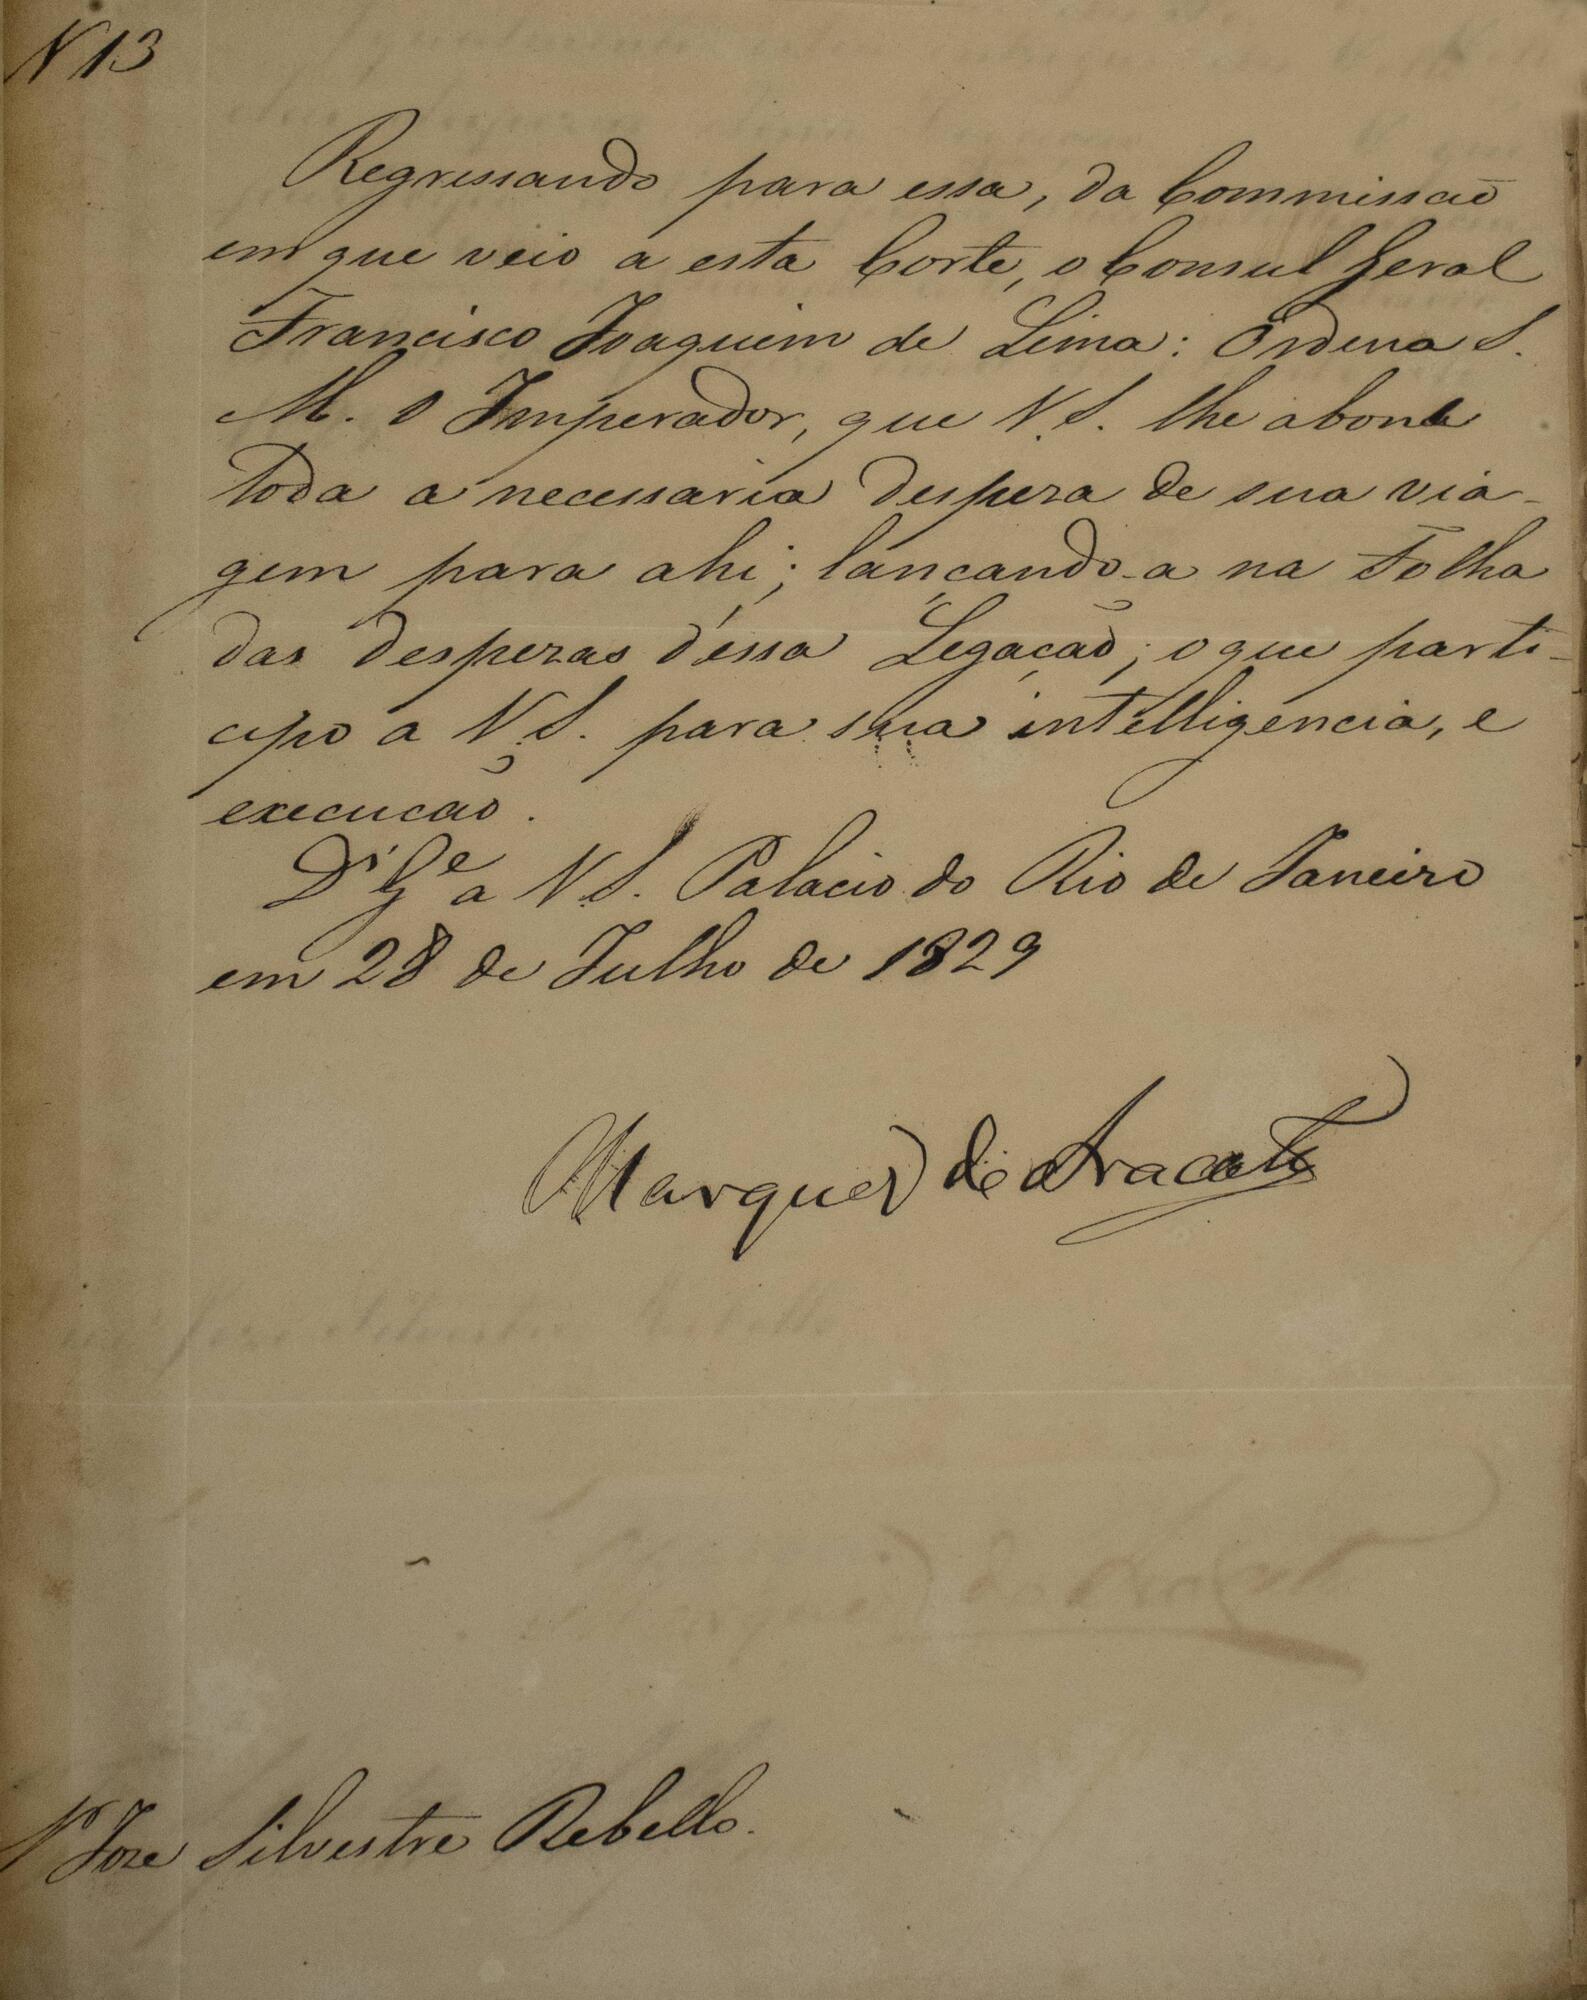 N 13
Regressando para essa, da Commissão
em que veio a esta Corte, o Consul Geral
Francisco Joaquim de Lima: Ordena S.
M. o Imperador, que V.S. lhe abone
toda a necessaria despeza de sua via-
gem para ahi; lançando-a na Folha
das despezas d'essa Legação; o que parti-
cipo a V.S. para sua intelligencia, e
execução.
Ds Ge a V.S. Palacio do Rio de Janeiro
em 28 de Julho de 1829
Marquez de Aracaty
Sr Joze Silvestre Rebello.